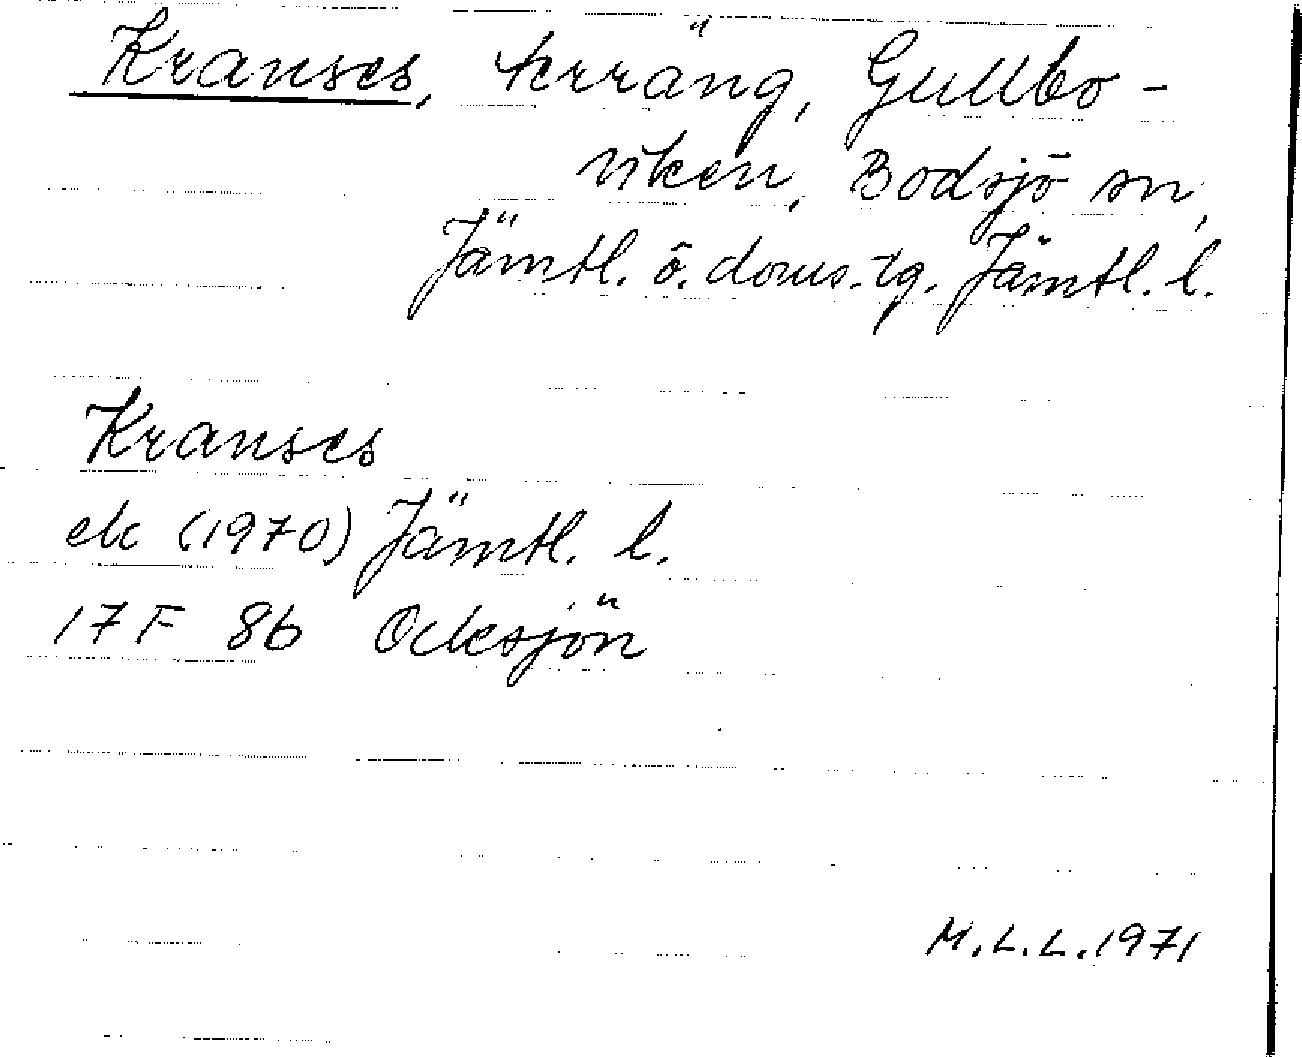 Kranses, terräng, Gullbo-
viken, Bodsjö sn,
Jämtl. ö. doms.tg. Jämtl. l.
Kranses
ek (1970) Jämtl. l.
17 F 8b Ocksjön
M.L.L. 1971